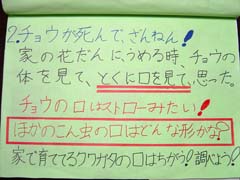 2.チョウが死んで、ざんねん!
家の花だんに、うめる時、チョウの
体を見て、とくに口を見て、思った。
チョウの口はストローみたい!
ほかのこん虫の口はどんな形かな?
家で育ててるクワガタの口はちがう!調べよう!